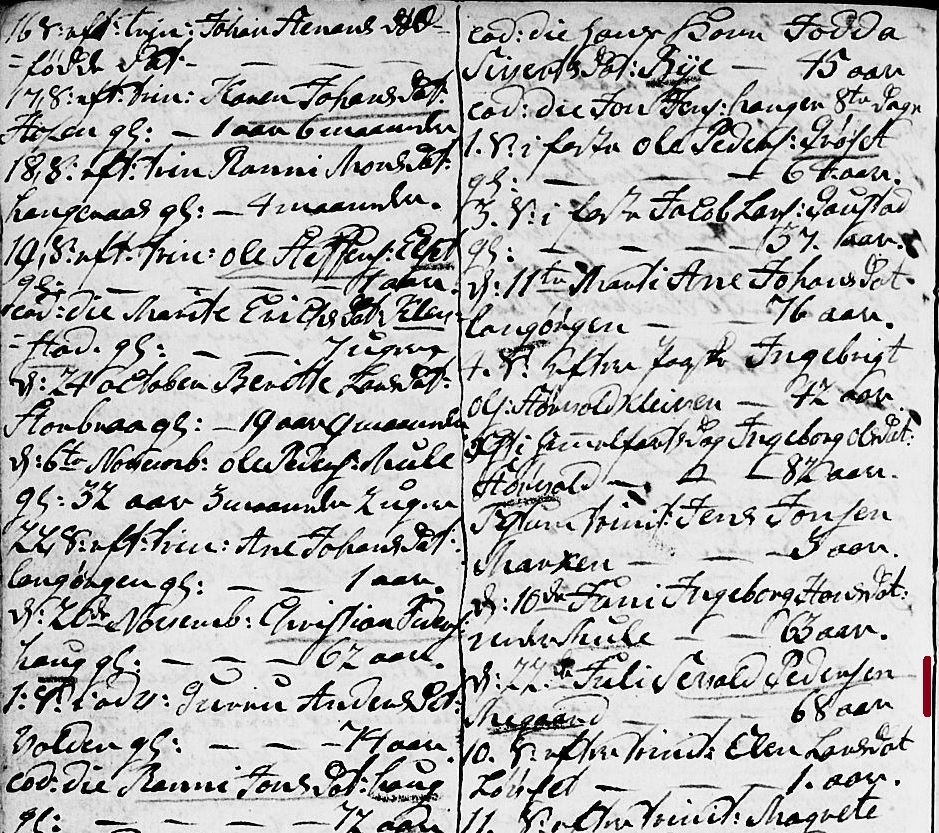 16 S: eft: trin: Johan Stenars död
-födde dat- — — —
17, S: eft: trin: Karen Johans dat:
gl: — 1 aar 6 maaneder
18, S: eft: trin Ranni Mons dat:
haugeraas gl: — 4 maaneder.
19, S: eft: trin: ole Steffens: Elset
gl: — — — 1 aar.
eod: die Marite Erichs dat: Klep-
-stad. gl: — — 7 uger
d: 24 october Beritte Lars dat:
Storbraa gl: — 19 aar 9 maaneder
d: 6te Novemb: ole Peders: Mule
gl: 32 aar 3 maaneder 2 uger
22, S: eft: trin: Ane Johans dat:
langörgen gl: — — 1 aar.
d: 26de Novemb: Christian Peders:
haug gl: — — — 62 aar.
1: S: i adv: Guru Anders dat:
Volden gl: — — — 74 aar.
eod: die Ranni Jons dat: haug
gl: — — — 72 aar
eod: die hans Kone Todda
Siverts dat: Bÿe — 45 aar
eod: die Jon Jens: haugen 8te dage
1. S: i faste ole Peders: Gröset
gl: — — — 61 aar.
3. S: i faste Jacob Lars: Gaustad
gl: — — — 37. aar.
d: 11te Marti Ane Johans dat-
langörgen — — 76 aar.
4. S: efter paaske Ingebrigt
ols: Hönsvold kleiven — 42 aar
Christi himmelfarts dag Ingeborg ols dat:
— — — 82 aar.
Festum trinit: Jens Jonsen
Marken — — — 5 aar.
d: 10de Juni Ingeborg Hans dat:
nedre Mule — — 63 aar.
d: 22de Juli Sevald Pedersen
Megaard — — 68 aar
10. S: efter trinit: Elen Larsdat
— — — 1. aar.
11. S: efter trinit: Magrete